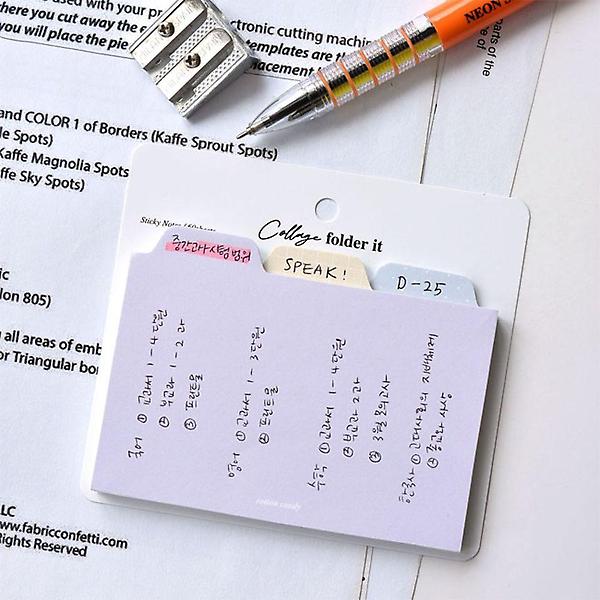 based with your pro
ere you cut away the
electronic cutting machine
you will place the pie
templates are the
lacement
NEON
parts of the
te of
and COLOR 1 of Borders (Kaffe Sprout Spots)
le Spots)
Kaffe Magnolia Spots
ffe Sky Spots)
ic
lon 805)
g all areas of emb
or Triangular bor
LLC
www.fabricconfetti.com
Rights Reserved
Sticky Notes
Collage folder it
중간고사 시험범위
SPEAK!
D-25
국어 ① 교과서 1-4단원
② 부교과 1-2과
③ 프린트물
영어 ① 교과서 1-3단원
② 프린트물
수학 ① 교과서 1-4단원
② 부교과 2과
③ 3월 모의고사
한국사 ① 고대사회의 지배체제
② 종교와 사상